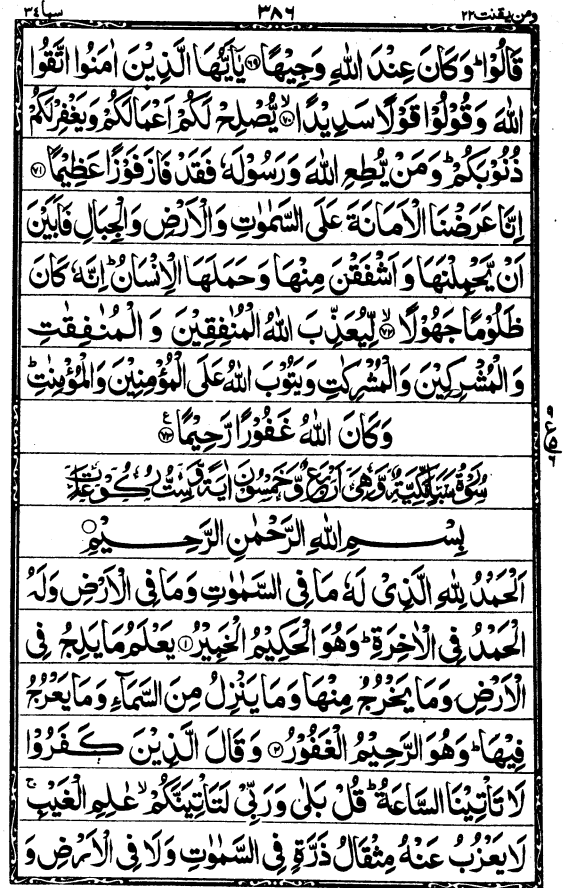 ومن يقنت ٢٢ ٣٨٦ سبا ٣٤
قَالُوْا ؕ وَكَانَ عِنْدَ اللّٰهِ وَجِيْهًا ؕ‏﴿۶۹﴾ يٰۤاَيُّهَا الَّذِيْنَ اٰمَنُوا اتَّقُوا
اللّٰهَ وَقُوْلُوْا قَوْلًا سَدِيْدًا ۙ‏﴿۷۰﴾ يُّصْلِحْ لَكُمْ اَعْمَالَكُمْ وَيَغْفِرْ لَكُمْ
ذُنُوْبَكُمْ ؕ وَمَنْ يُّطِعِ اللّٰهَ وَرَسُوْلَهٗ فَقَدْ فَازَ فَوْزًا عَظِيْمًا ﴿۷۱﴾
اِنَّا عَرَضْنَا الْاَمَانَةَ عَلَى السَّمٰوٰتِ وَالْاَرْضِ وَالْجِبَالِ فَاَبَيْنَ
اَنْ يَّحْمِلْنَهَا وَاَشْفَقْنَ مِنْهَا وَحَمَلَهَا الْاِنْسَانُ ؕ اِنَّهٗ كَانَ
ظَلُوْمًا جَهُوْلًا ۙ‏﴿۷۲﴾ لِّيُعَذِّبَ اللّٰهُ الْمُنٰفِقِيْنَ وَالْمُنٰفِقٰتِ
وَالْمُشْرِكِيْنَ وَالْمُشْرِكٰتِ وَيَتُوْبَ اللّٰهُ عَلَى الْمُؤْمِنِيْنَ وَالْمُؤْمِنٰتِ ؕ
وَكَانَ اللّٰهُ غَفُوْرًا رَّحِيْمًا ﴿۷۳﴾ ع
سُوْرَةُ سَبَاٍ مَّكِّيَّةٌ وَّهِىَ اَرْبَعٌ وَّخَمْسُوْنَ اٰيَةً وَّسِتُّ رُكُوْعَاتٍ
بِسْمِ اللّٰهِ الرَّحْمٰنِ الرَّحِيْمِ
اَلْحَمْدُ لِلّٰهِ الَّذِىْ لَهٗ مَا فِى السَّمٰوٰتِ وَمَا فِى الْاَرْضِ وَلَهُ
الْحَمْدُ فِى الْاٰخِرَةِ ؕ وَهُوَ الْحَكِيْمُ الْخَبِيْرُ ﴿۱﴾ يَعْلَمُ مَا يَلِجُ فِى
الْاَرْضِ وَمَا يَخْرُجُ مِنْهَا وَمَا يَنْزِلُ مِنَ السَّمَآءِ وَمَا يَعْرُجُ
فِيْهَا ؕ وَهُوَ الرَّحِيْمُ الْغَفُوْرُ ﴿۲﴾ وَقَالَ الَّذِيْنَ كَفَرُوْا
لَا تَاْتِيْنَا السَّاعَةُ ؕ قُلْ بَلٰى وَرَبِّىْ لَتَاْتِيَنَّكُمْ ۙ عٰلِمِ الْغَيْبِ ۚ
لَا يَعْزُبُ عَنْهُ مِثْقَالُ ذَرَّةٍ فِى السَّمٰوٰتِ وَلَا فِى الْاَرْضِ وَ